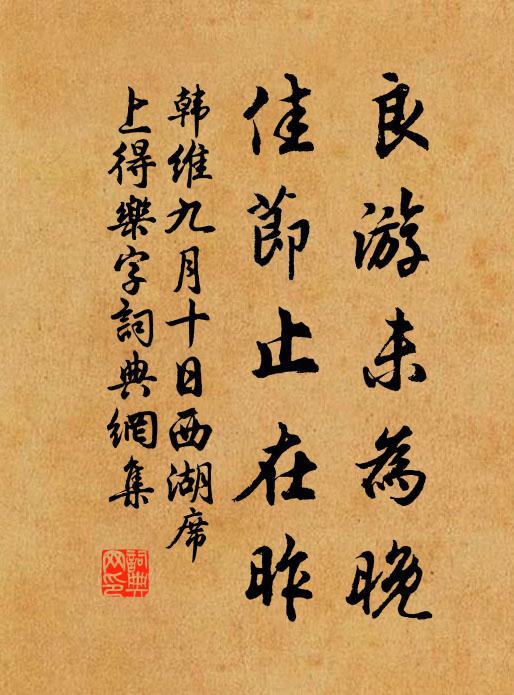 良游未為晚
佳節止在昨
韩維九月十日西湖席
上得樂字詞典網集
詞典
网印